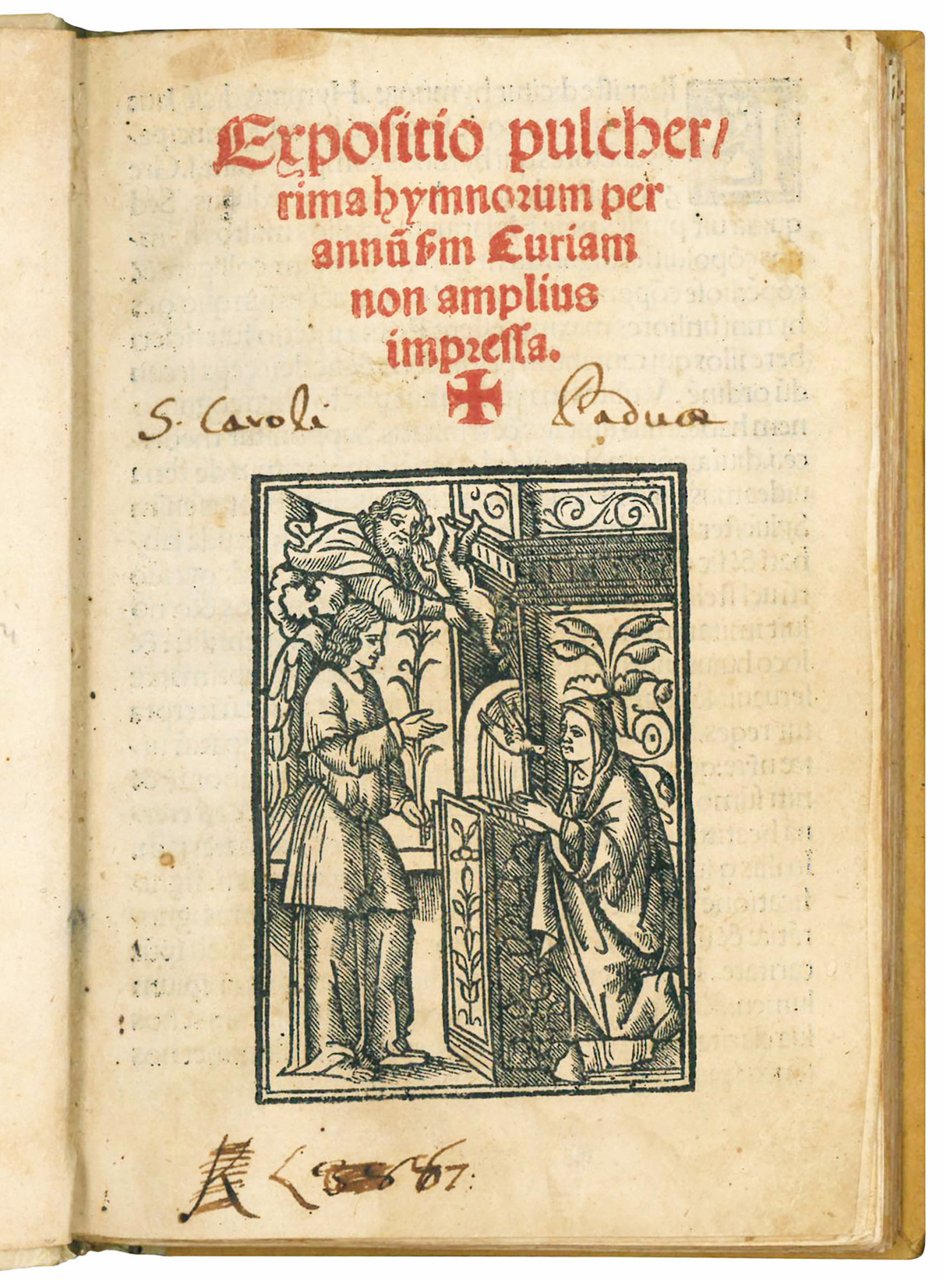 Expoſitio pulcher/
rima hymnorum per
annū ſm Curiam
non amplius
impreſſa.
S. Caroli Paduæ